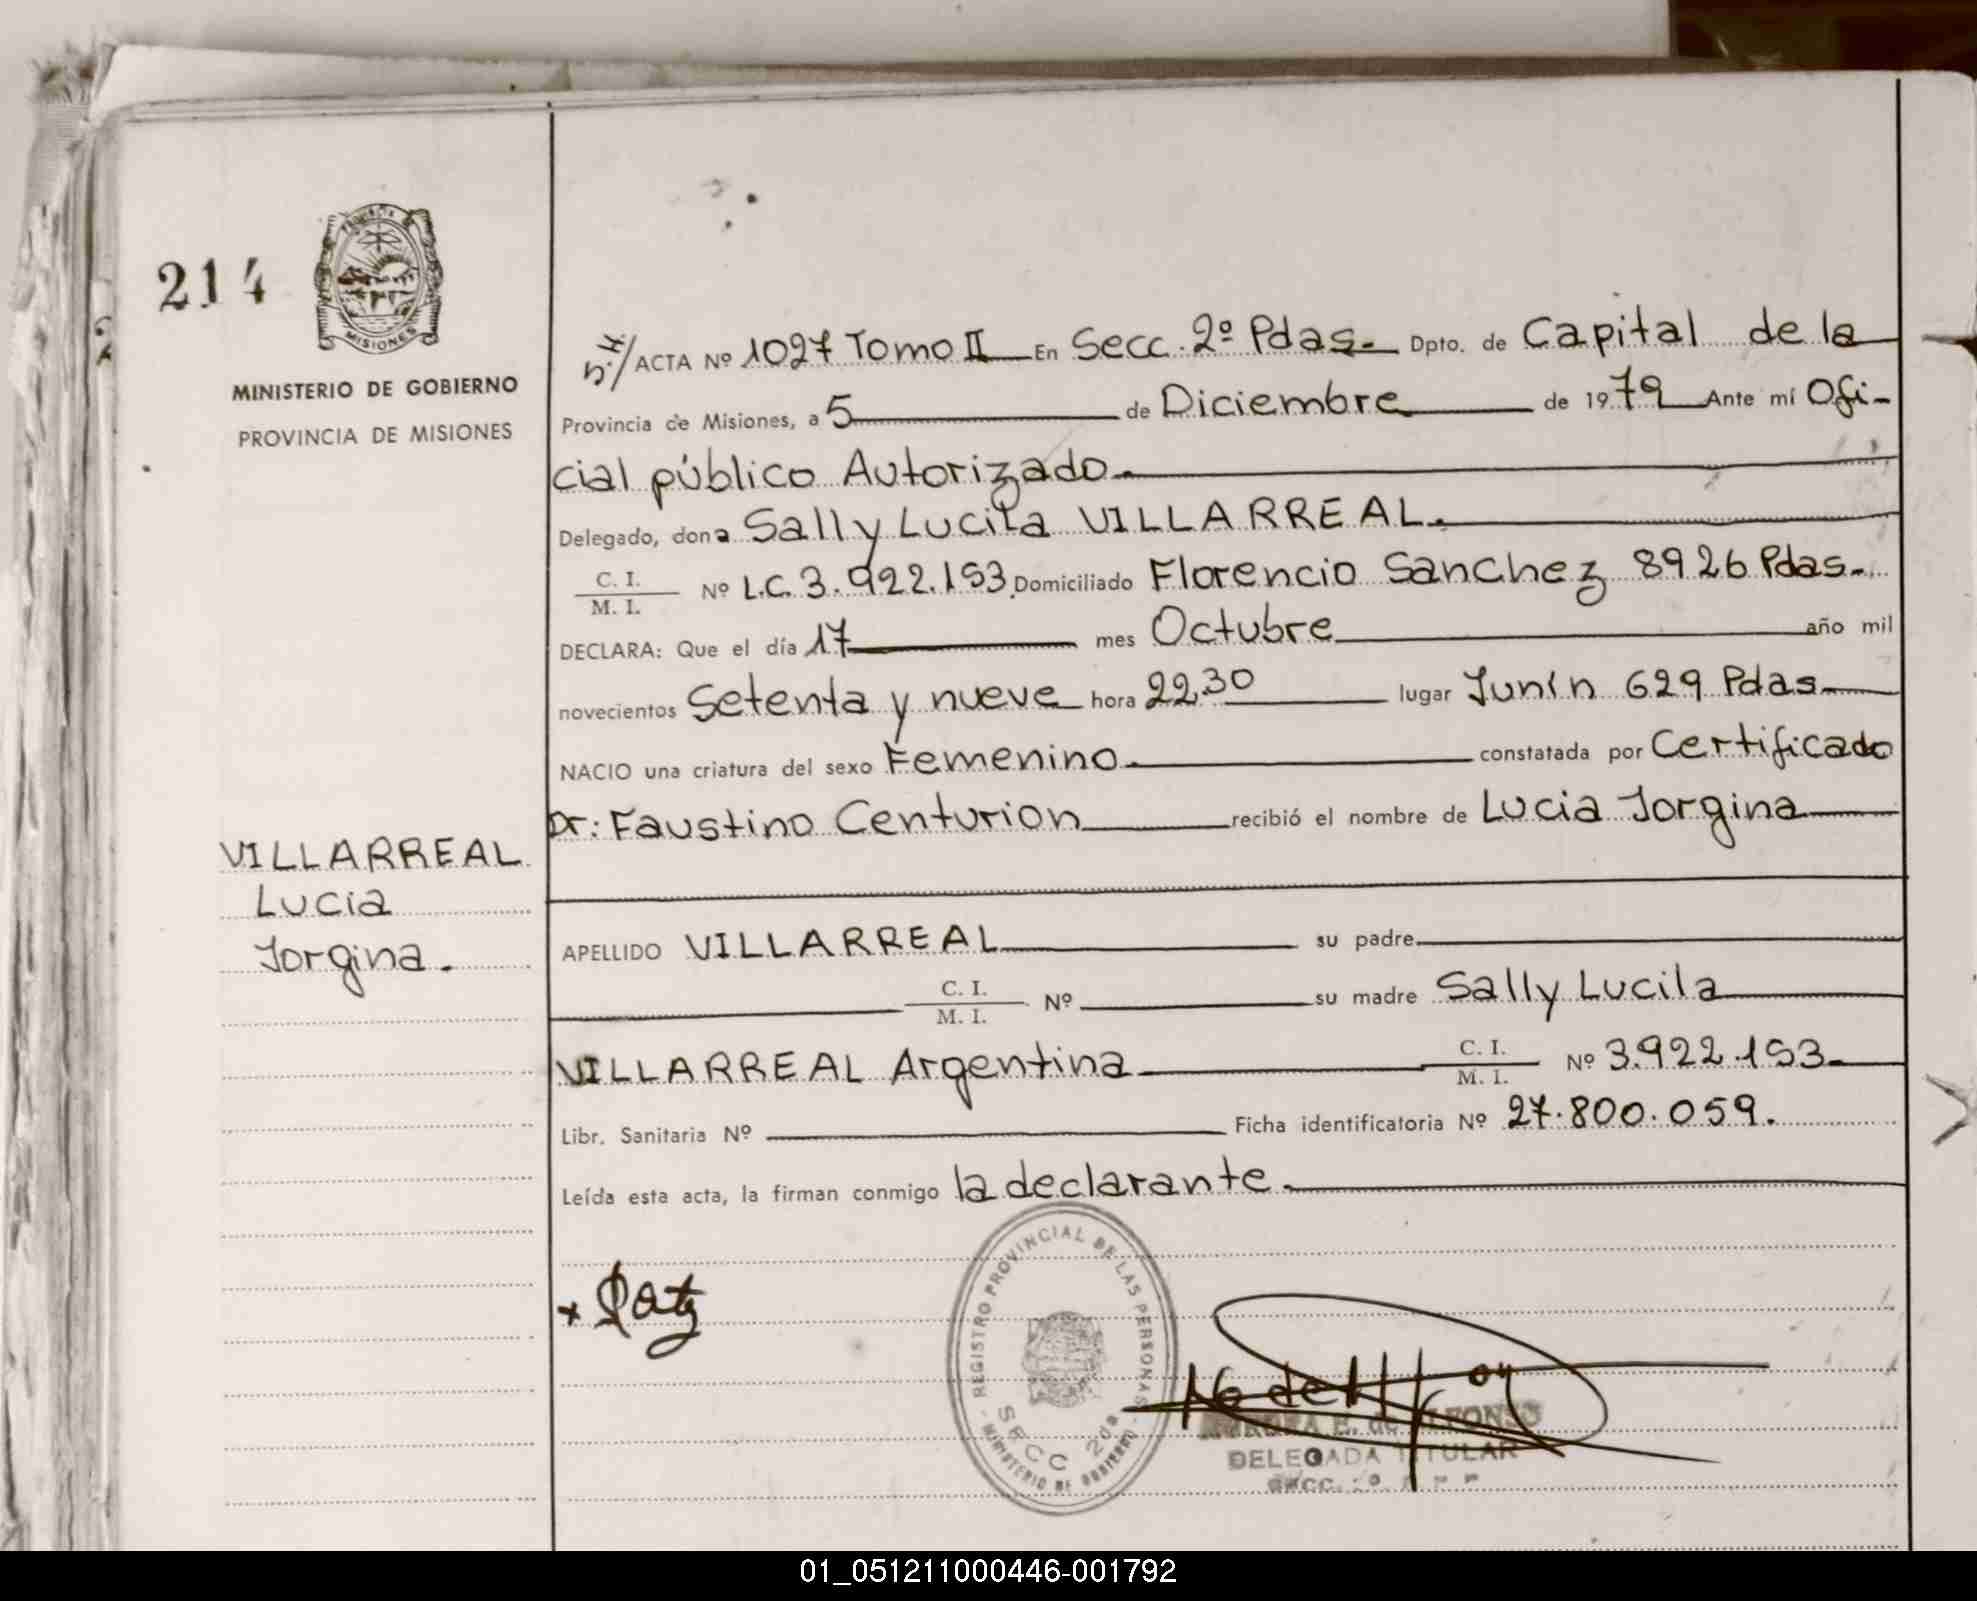 214
PROVINCIA DE
MISIONES
MINISTERIO DE GOBIERNO
PROVINCIA DE MISIONES
ACTA Nº 1027 Tomo II En Secc. 2º Pdas. Dpto. de Capital de la
Provincia de Misiones, a 5 de Diciembre de 1979 Ante mí Ofi-
cial público Autorizado.
Delegado, dona Sally Lucila VILLARREAL.
C. I.
M. I. Nº L.C. 3.922.153 Domiciliado Florencio Sanchez 8926 Pdas.
DECLARA: Que el día 17 mes Octubre año mil
novecientos Setenta y nueve hora 22.30 lugar Junín 629 Pdas.
NACIO una criatura del sexo Femenino. constatada por Certificado
Dr: Faustino Centurion recibió el nombre de Lucia Jorgina
VILLARREAL
Lucia
Jorgina.
APELLIDO VILLARREAL su padre
C. I.
M. I. Nº su madre Sally Lucila
VILLARREAL Argentina C. I.
M. I. Nº 3.922.153.
Libr. Sanitaria Nº Ficha identificatoria Nº 27.800.059.
Leída esta acta, la firman conmigo la declarante.
REGISTRO PROVINCIAL DE LAS PERSONAS
SECC 2da
MINISTERIO DE GOBIERNO
E. de ALFONSO
DELEGADA TITULAR
SECC.
01_051211000446-001792